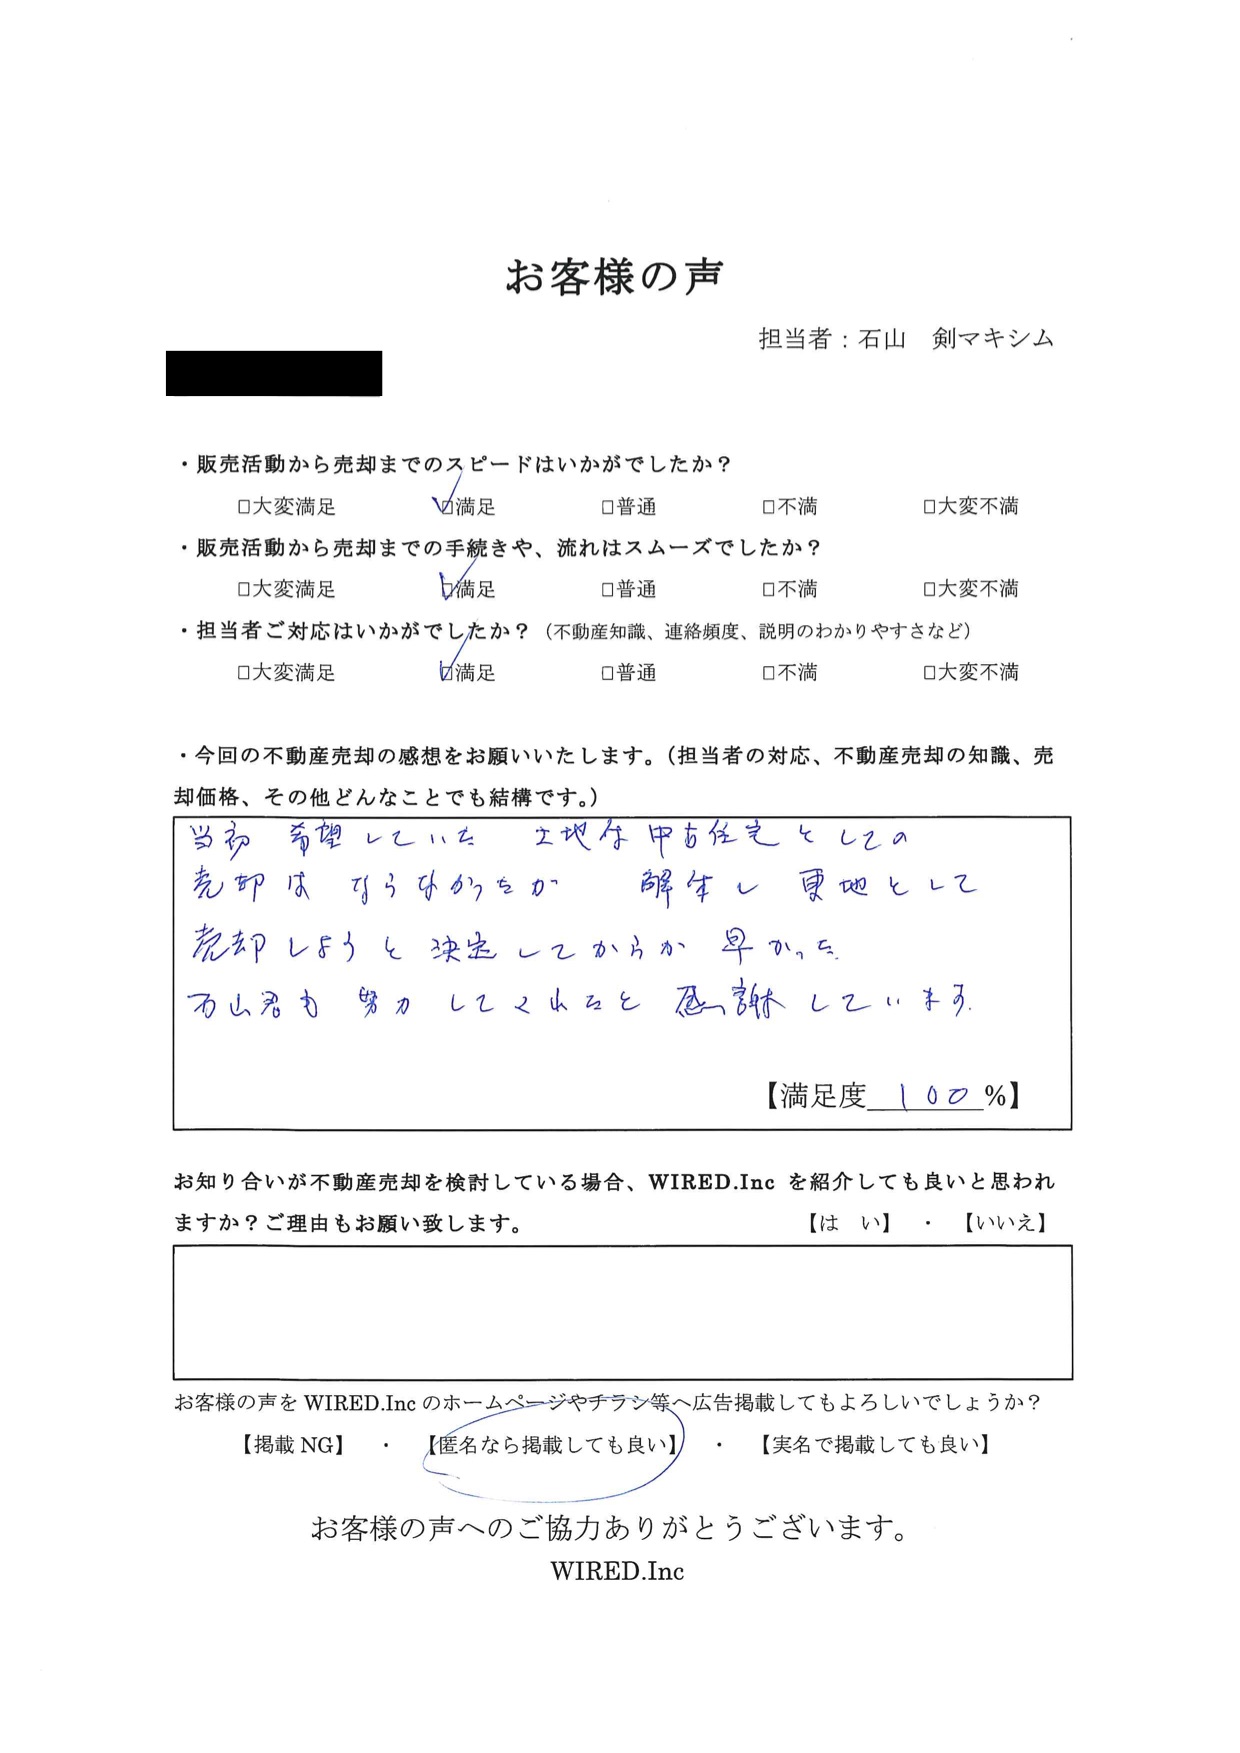 お客様の声
担当者：石山　剣マキシム
・販売活動から売却までのスピードはいかがでしたか？
□大変満足　☑満足　□普通　□不満　□大変不満
・販売活動から売却までの手続きや、流れはスムーズでしたか？
□大変満足　☑満足　□普通　□不満　□大変不満
・担当者ご対応はいかがでしたか？（不動産知識、連絡頻度、説明のわかりやすさなど）
□大変満足　☑満足　□普通　□不満　□大変不満
・今回の不動産売却の感想をお願いいたします。（担当者の対応、不動産売却の知識、売
却価格、その他どんなことでも結構です。）
当初 希望していた 土地付中古住宅としての
売却は ならなかったが 解体し 更地として
売却しようと 決定してからが 早かった
石山君も 努力 してくれたと 感謝 しています.
【満足度 100 %】
お知り合いが不動産売却を検討している場合、WIRED.Inc を紹介しても良いと思われ
ますか？ご理由もお願い致します。　【は　い】　・　【いいえ】
お客様の声を WIRED.Inc のホームページやチラシ等へ広告掲載してもよろしいでしょうか？
【掲載 NG】　・　【匿名なら掲載しても良い】　・　【実名で掲載しても良い】
お客様の声へのご協力ありがとうございます。
WIRED.Inc